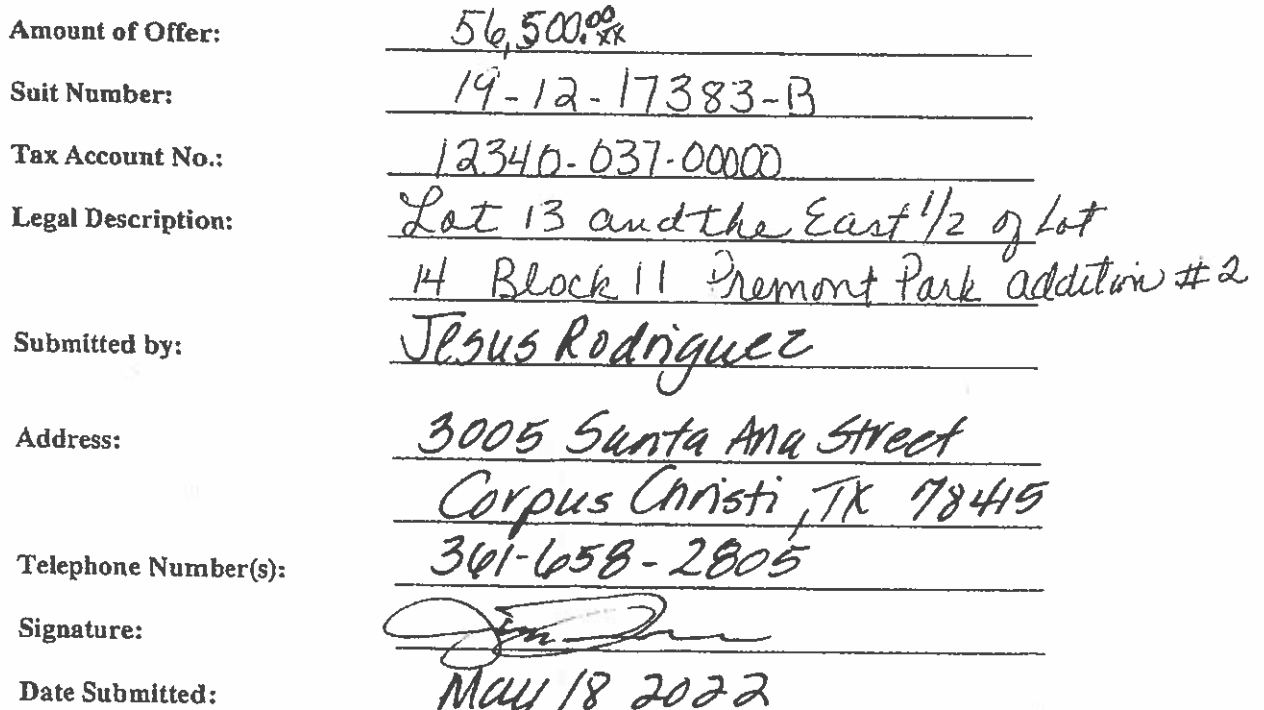 Amount of Offer: 56,500.00/xx
Suit Number: 19-12-17383-B
Tax Account No.: 12340-037-00000
Legal Description: Lot 13 and the East 1/2 of Lot
14 Block 11 Premont Park addition #2
Submitted by: Jesus Rodriguez
Address: 3005 Santa Ana Street
Corpus Christi, TX 78415
Telephone Number(s): 361-658-2805
Signature:
Date Submitted: May 18 2022